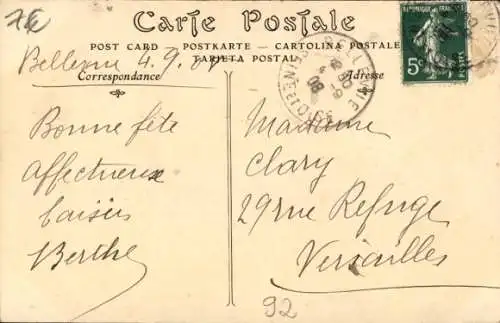 7€
Carte Postale
POST CARD - POSTKARTE - CARTOLINA POSTALE
TARJETA POSTAL
4.9.07
Correspondance
Adresse
08
5c
Bonne fête
Affectueux
baisers
Berthe
Madame
Clary
29 rue Refuge
Versailles
92